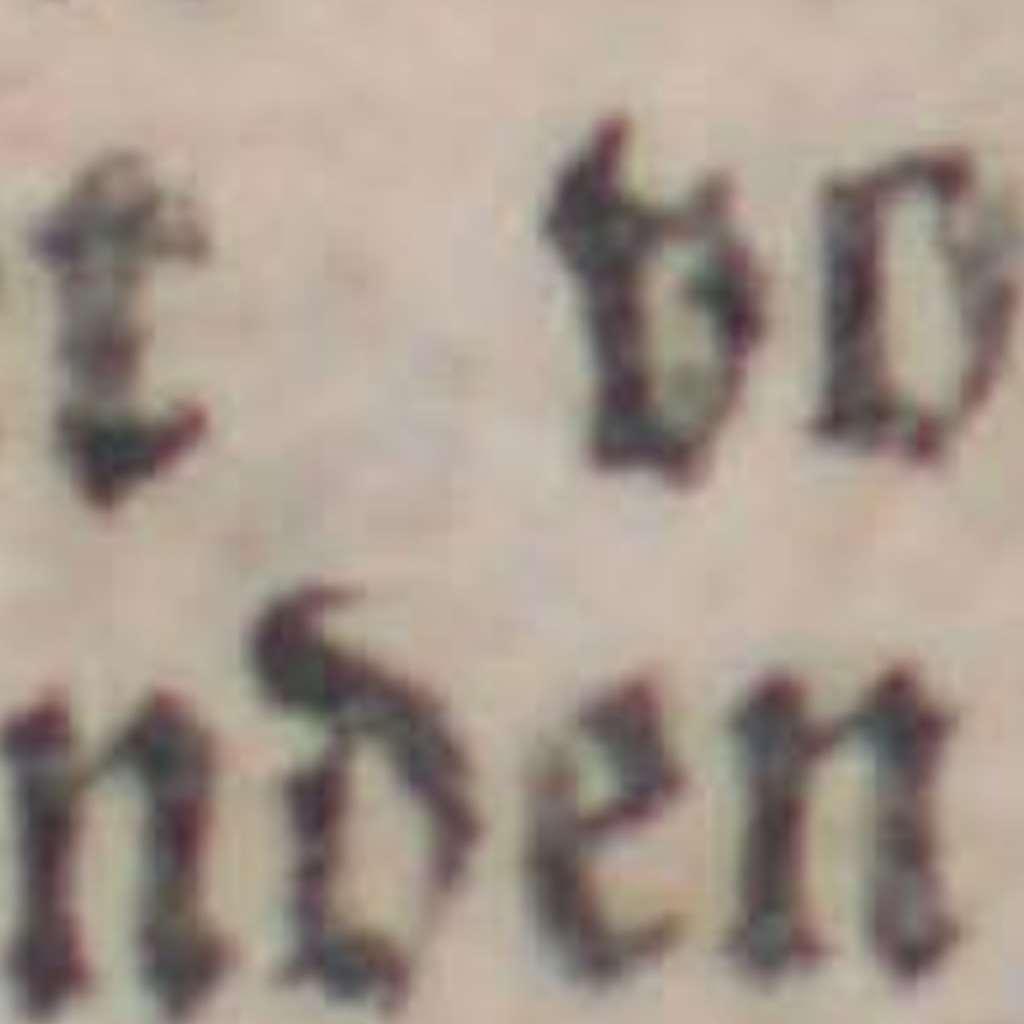 t vo
nden